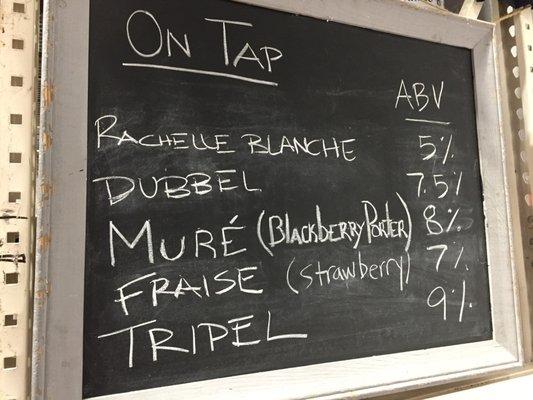 On Tap
ABV
Rachelle Blanche 5%
Dubbel 7.5%
Muré (Blackberry Porter) 8%
Fraise (strawberry) 7%
Tripel 9%